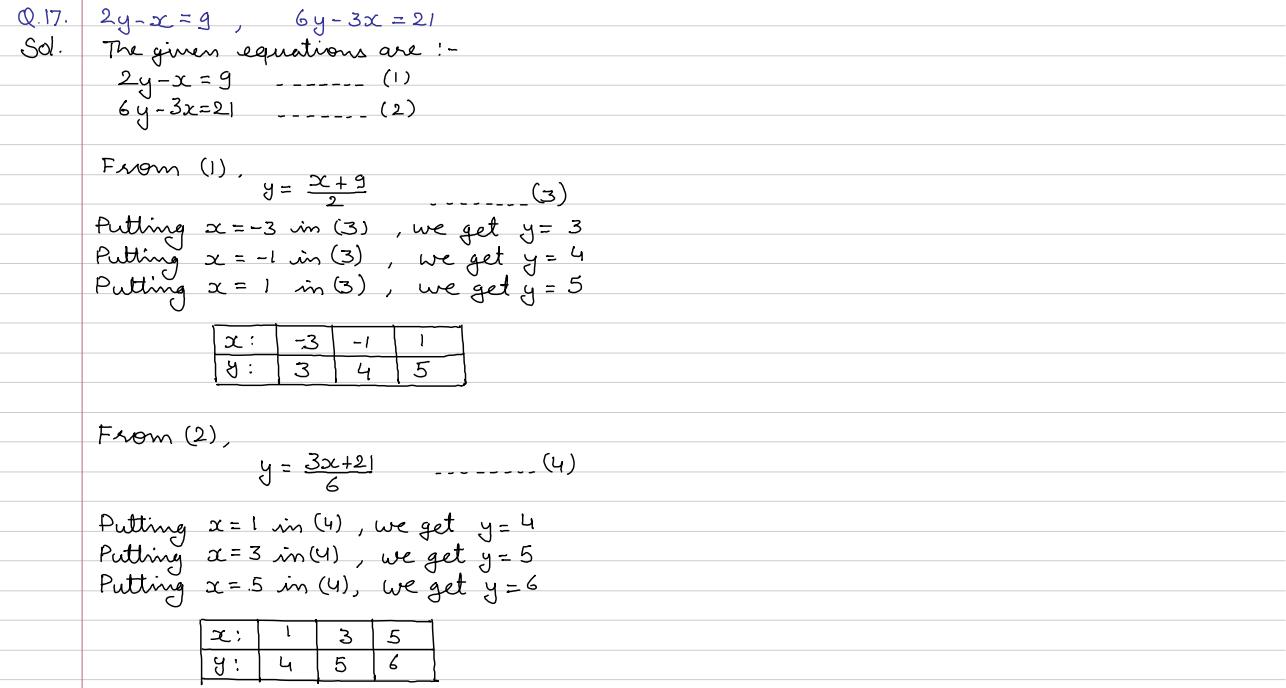 Q.17. 2y-x=9 , 6y-3x=21
Sol. The given equations are :-
2y-x=9 ------- (1)
6y-3x=21 ------- (2)
From (1),
y = (x+9)/2 -------- (3)
Putting x=-3 in (3) , we get y= 3
Putting x = -1 in (3) , we get y = 4
Putting x = 1 in (3) , we get y = 5
x: -3 -1 1
y: 3 4 5
From (2),
y = (3x+21)/6 -------- (4)
Putting x=1 in (4) , we get y=4
Putting x=3 in (4) , we get y=5
Putting x=.5 in (4), we get y=6
x: 1 3 5
y: 4 5 6